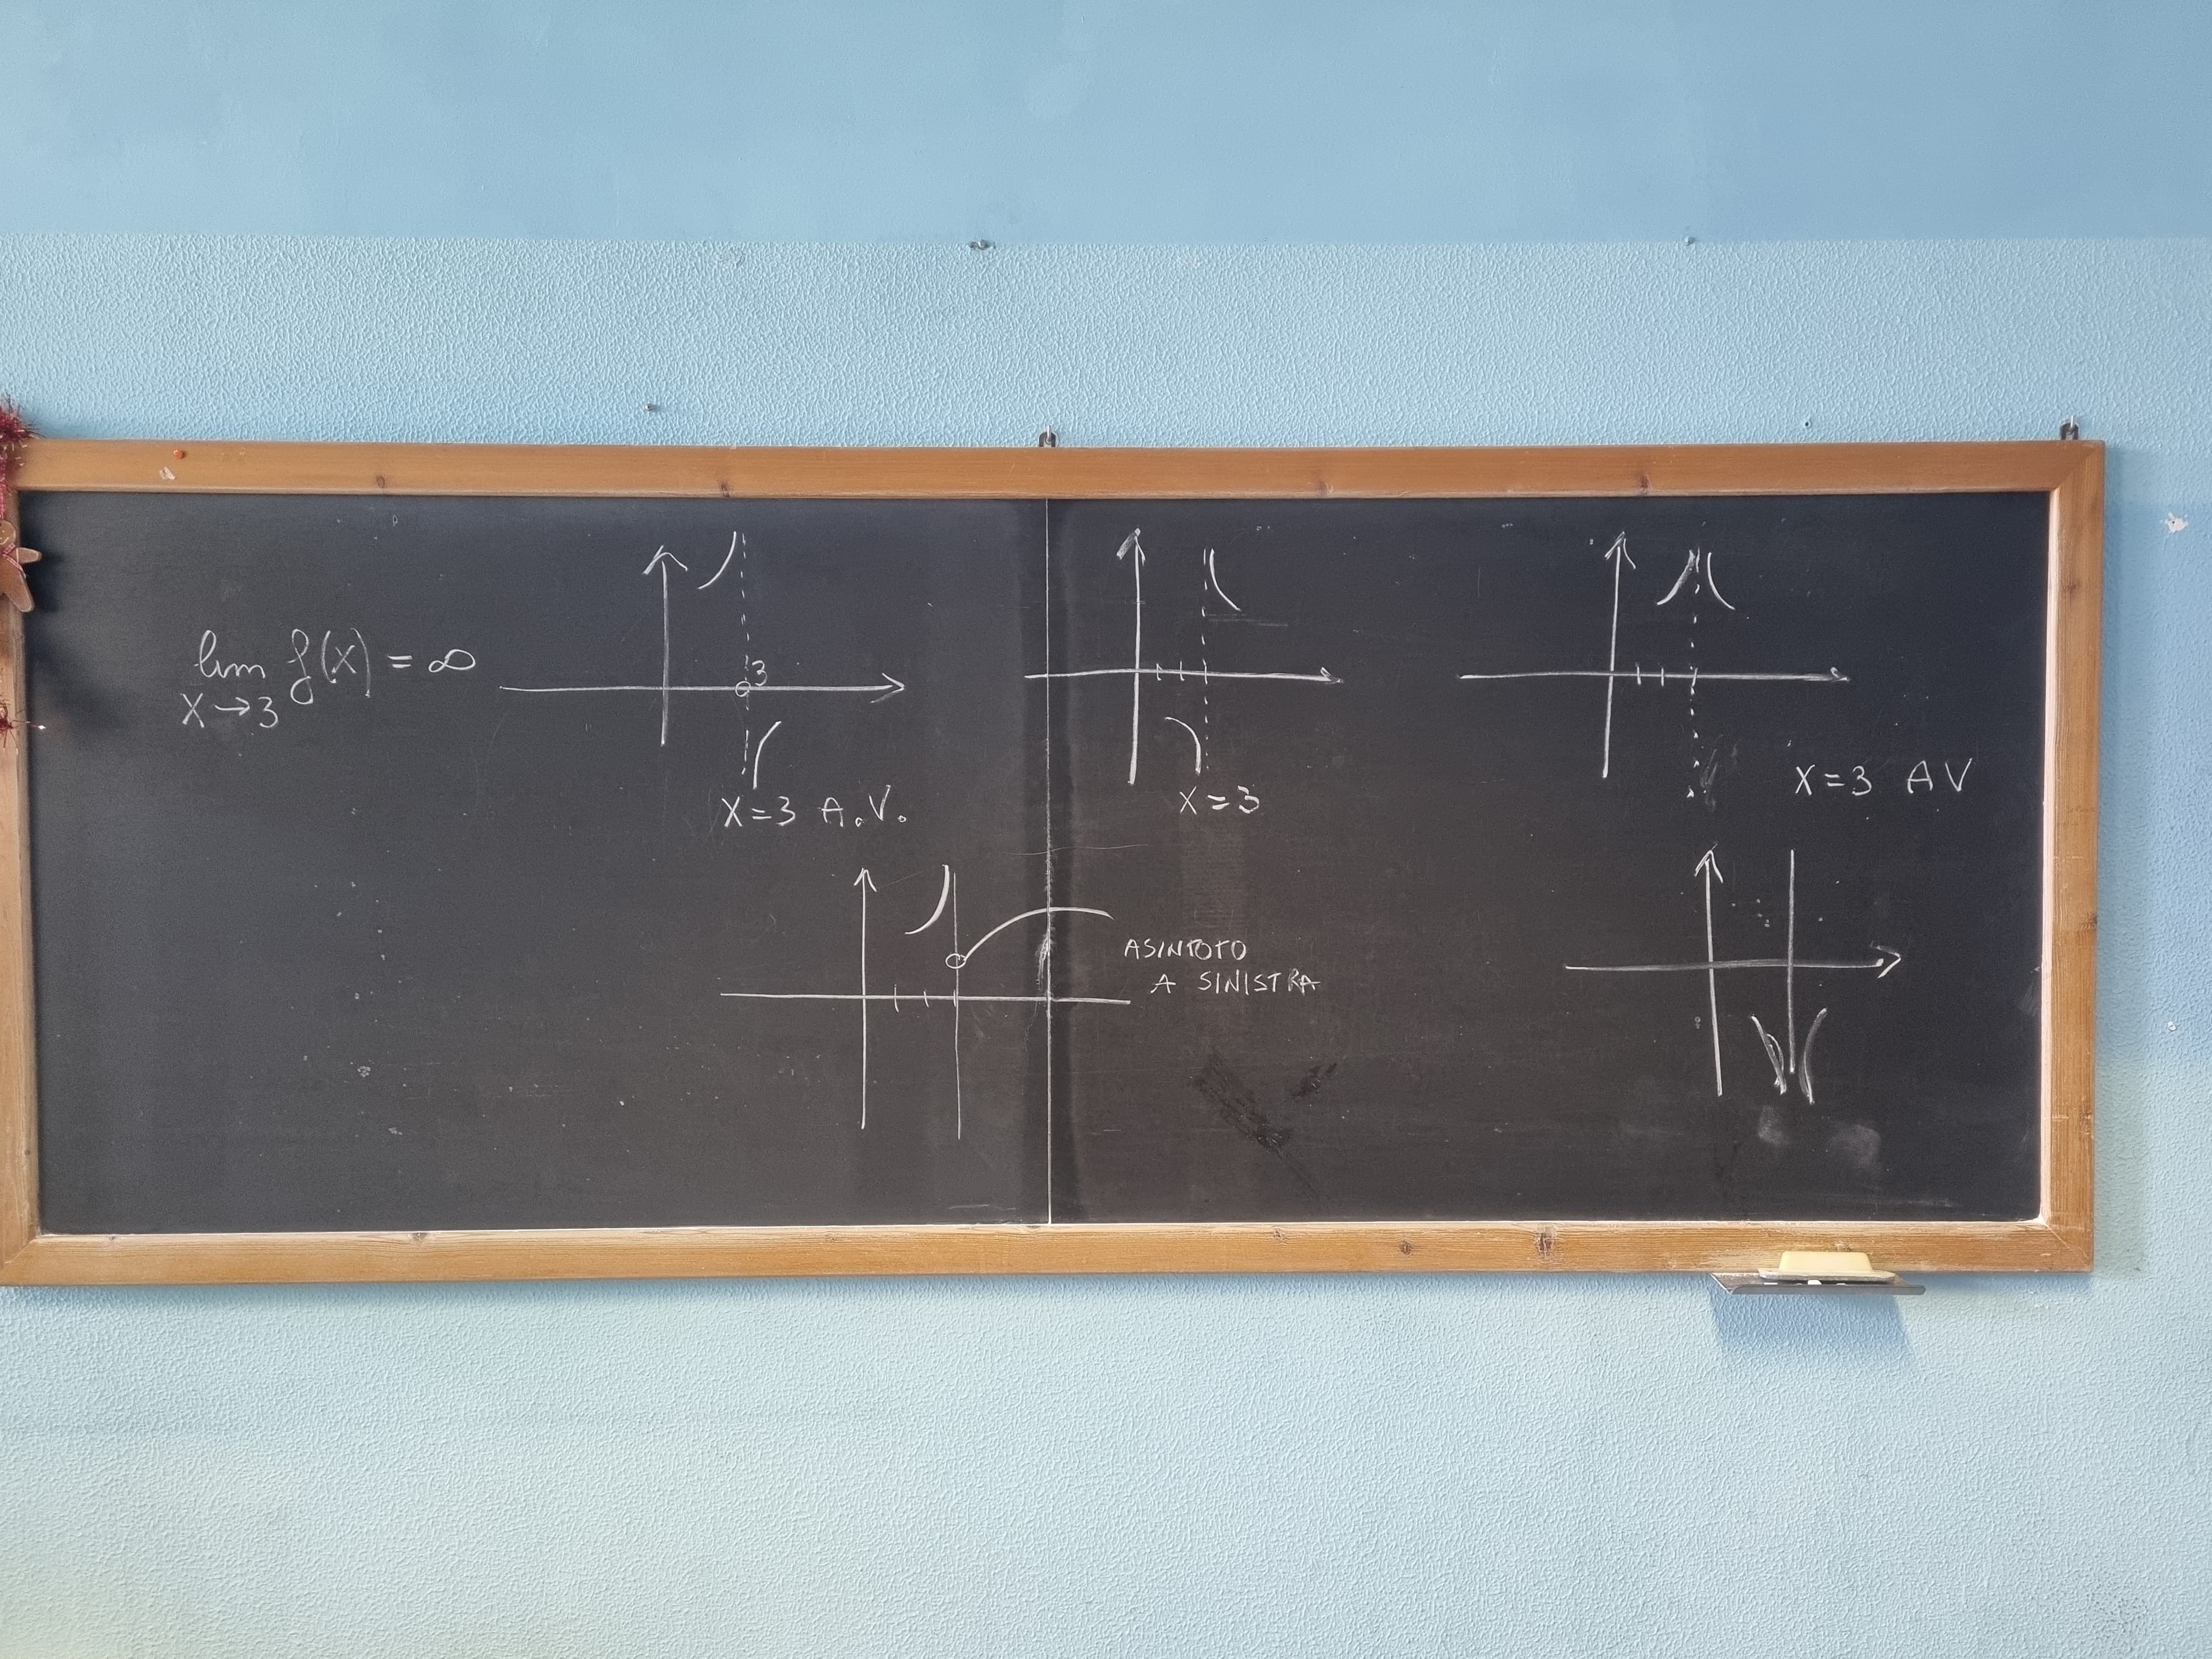 lim f(x) = ∞
x→3
3
x=3 A.V.
x=3
x=3 AV
ASINTOTO
A SINISTRA